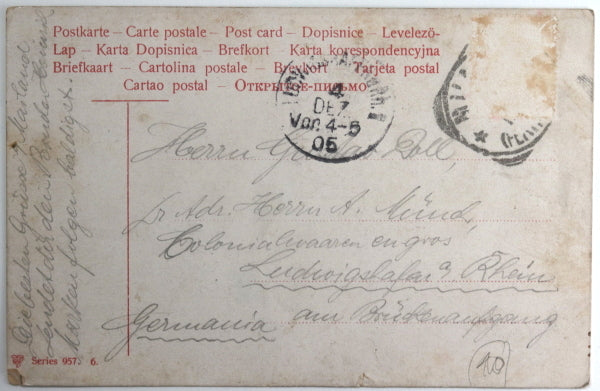 Postkarte – Carte postale – Post card – Dopisnice – Levelező-
Lap – Karta Dopisnica – Brefkort – Karta korespondencyjna
Briefkaart – Cartolina postale – Brevkort – Tarjeta postal
Cartao postal – Открытое-письмо
4
DEZ
Vor. 4-5
05
Die besten Grüsse v. Mailand
sendet dir dein Bruder
Marken folgen baldigst.
Herrn Gustav Doll,
pr Adr. Herrn A. Münch,
Colonialwaaren en gros
Ludwigshafen a/ Rhein
am Brückenaufgang
Germania
Series 957. 6.
40